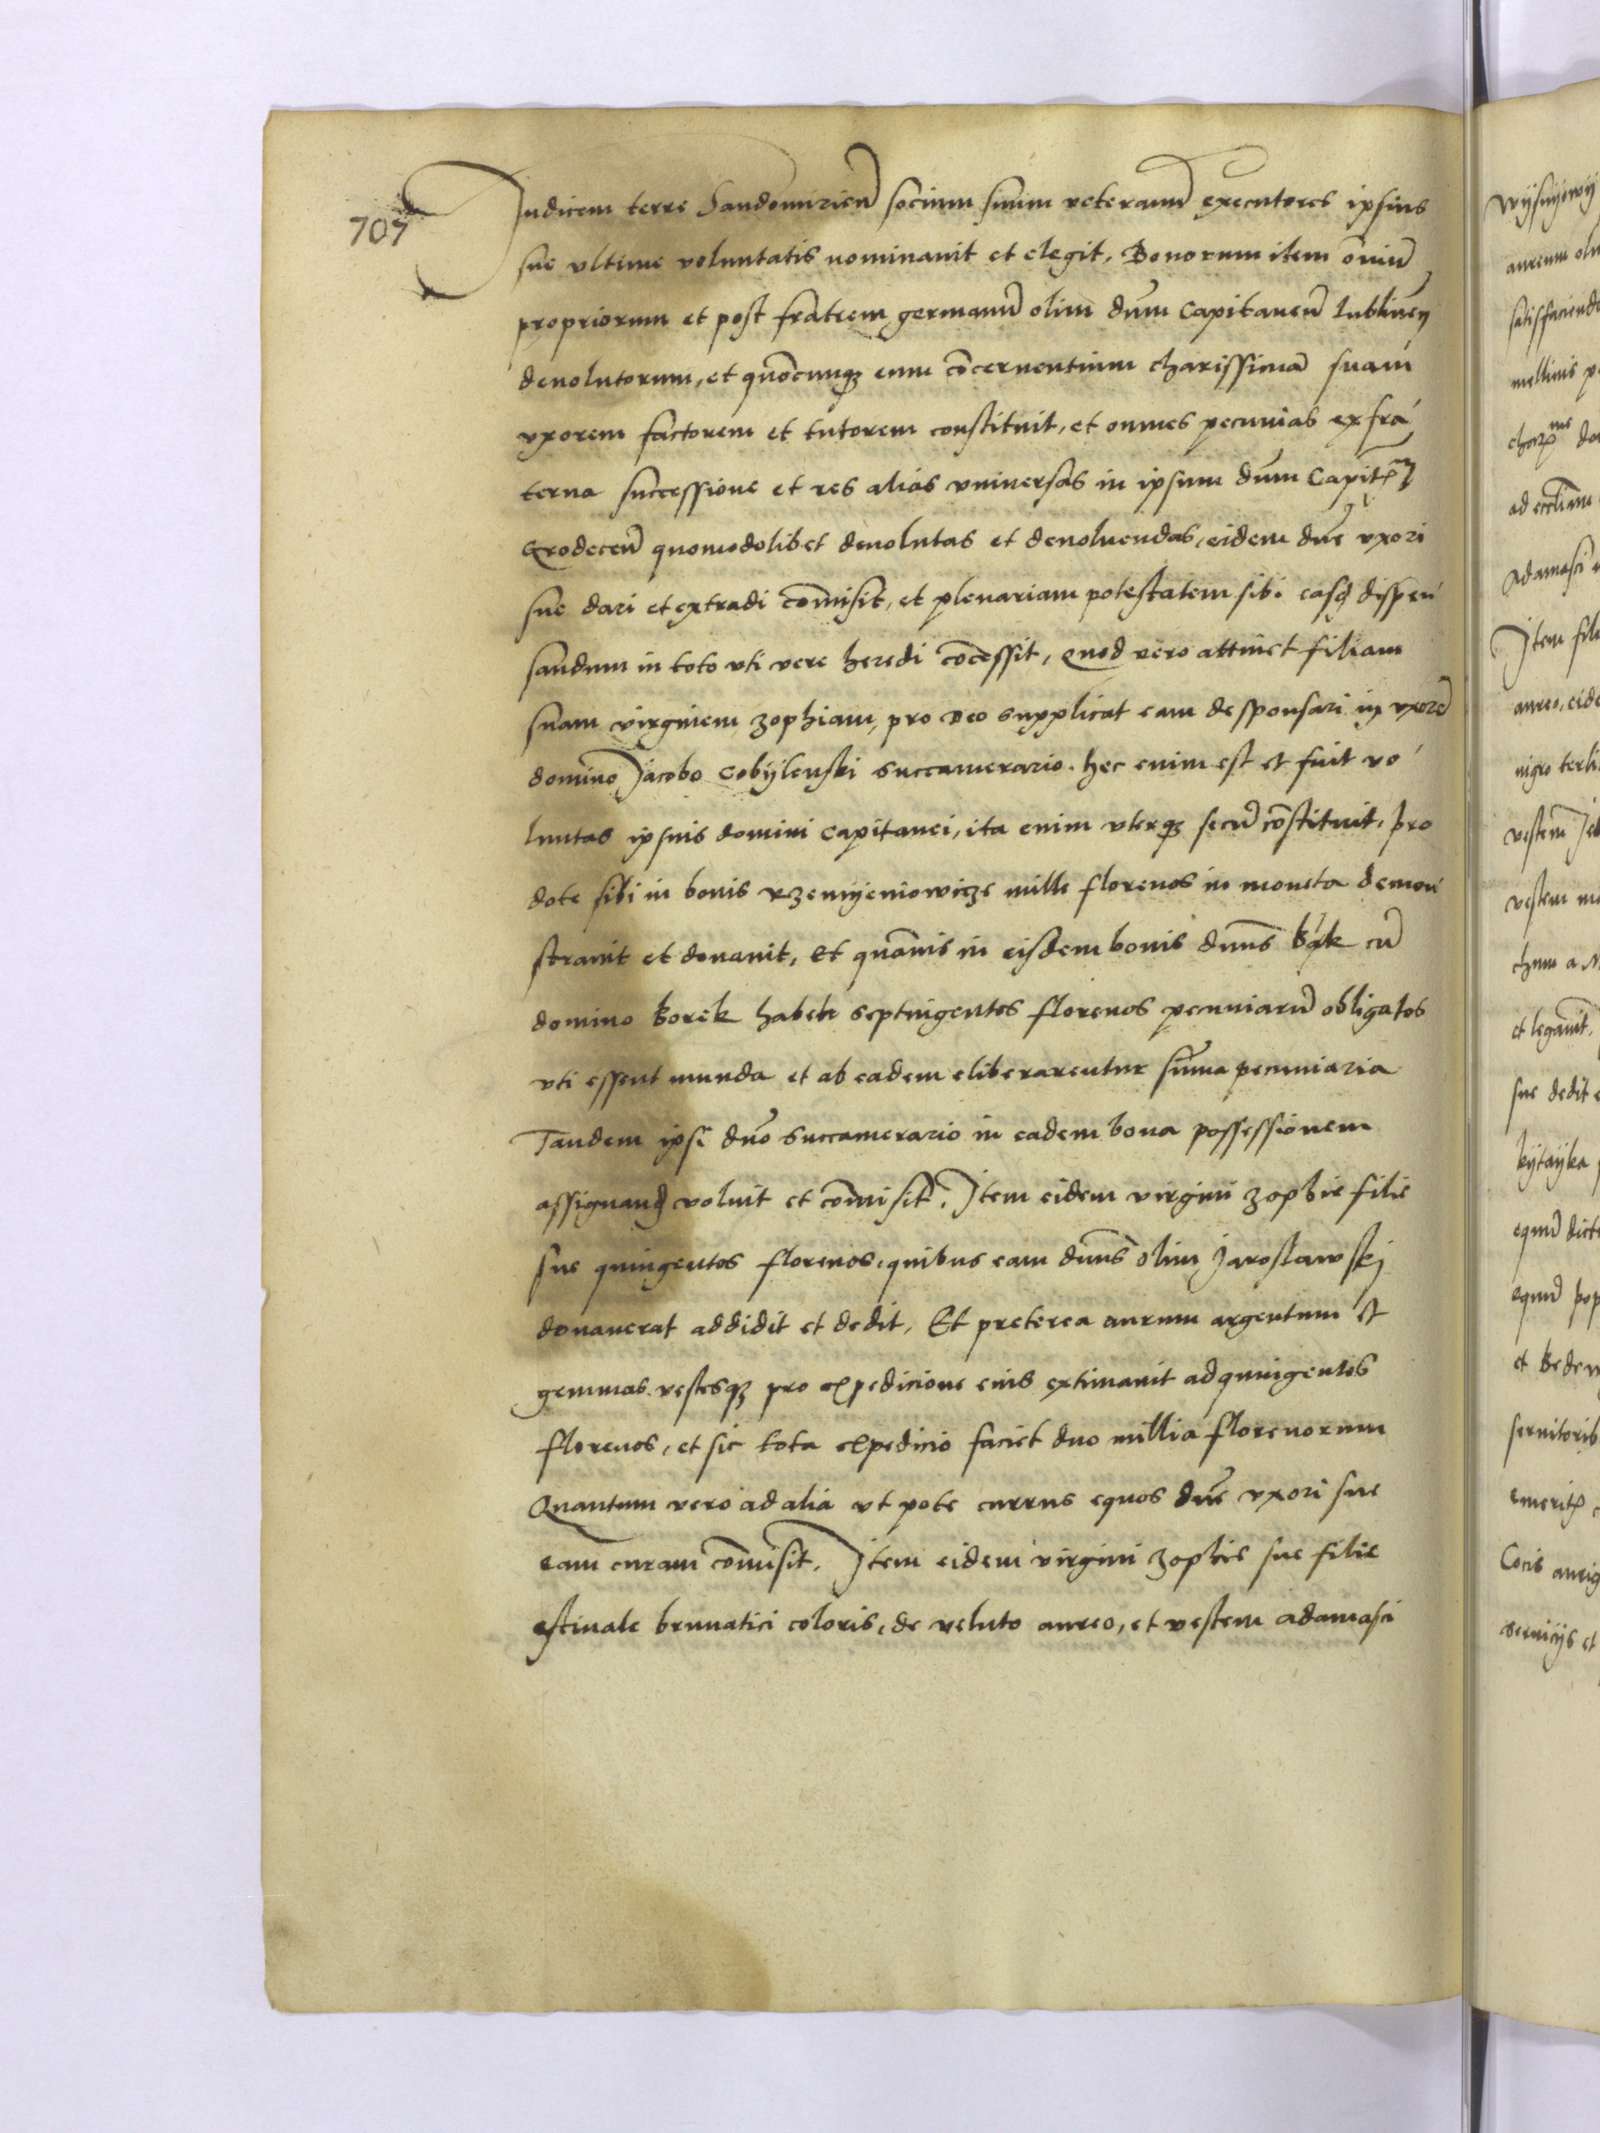 707
Iudicem terre Sandomirien̄ socium suum veteranū executores ipsius
sue vltime voluntatis nominauit et elegit, Bonorum item om̄iū
propriorum et post fratrem germanū olim dn̄m Capitaneū Lublineñ
deuolutorum, et quōcunq3 eum cōcernentium charissimā suam
vxorem factorem et tutorem constituit, et omnes pecunias ex fra
terna successione et res alias vniuersas in ipsum dn̄m Capit
Grodecen̄ quomodolibet deuolutas et deuoluendas, eidem dn̄e vxori
sue dari et extradi cōmisit, et plenariam potestatem sibi easq3 dispen
sandum in toto vti vere heredi cōcessit, Quod vero attinet filiam
suam virginem Zophiam, pro Deo supplicat eam desponsari in vxorē
domino Jacobo Cobijlenski Succamerario. hec enim est et fuit vo
luntas ipsius domini Capitanei, ita enim vterq3 secū cōstituit, pro
dote sibi in bonis Rzemijeniowicze mille florenos in moneta demon
strauit et donauit, Et quāuis in eisdem bonis dn̄us Bąk cū
domino Borek habet septuigentos florenos pecuniarū obligatos
vti essent munda et ab eadem eliberarentur sum̄a pecuniaria
Tandem ipsi dn̄o Succamerario in eadem bona possessionem
assignand voluit et cōmisit, Item eidem virgini Zophie filie
sue quingentos florenos, quibus eam dn̄us olim Jaroslawskj
donauerat addidit et dedit, Et preterea aurum argentum et
gemmas vestesq3 pro expedicione eius extimauit ad quuigentos
florenos, et sic tota expedicio faciet duo millia florenorum
Quantum vero ad alia vt pote currus equos dn̄e vxori sue
eam curam cōmisit, Item eidem virgini Zophie sue filie
estiuale brunatici coloris, de veluto aureo, et vestem adamasci
aureum
nigro
vestem
vestem
chum a
et legauit,
sue dedit
kijtaijka
et
Cocis
seruicijs et
Item